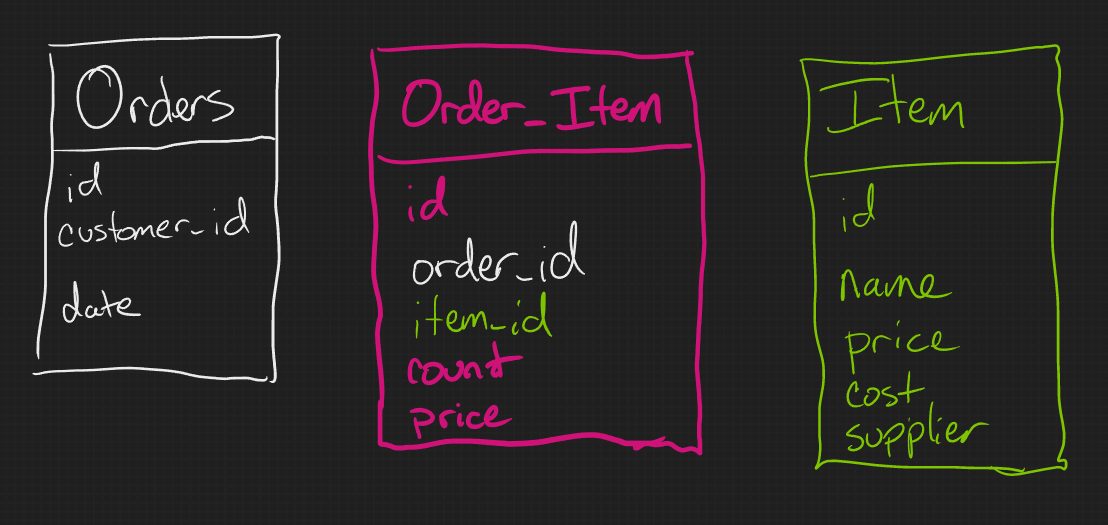 Orders
id
customer_id
date
Order_Item
id
order_id
item_id
count
price
Item
id
name
price
cost
supplier